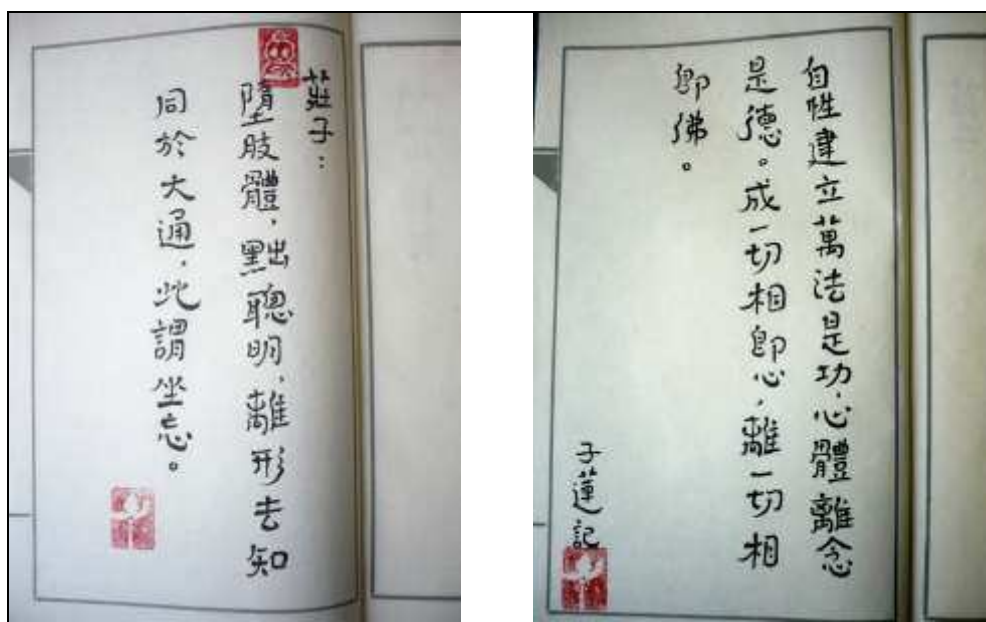 莊子：
墮肢體，黜聰明，離形去知
同於大通，此謂坐忘。
自性建立萬法是功，心體離念
是德。成一切相即心，離一切相
即佛。
子蓮記